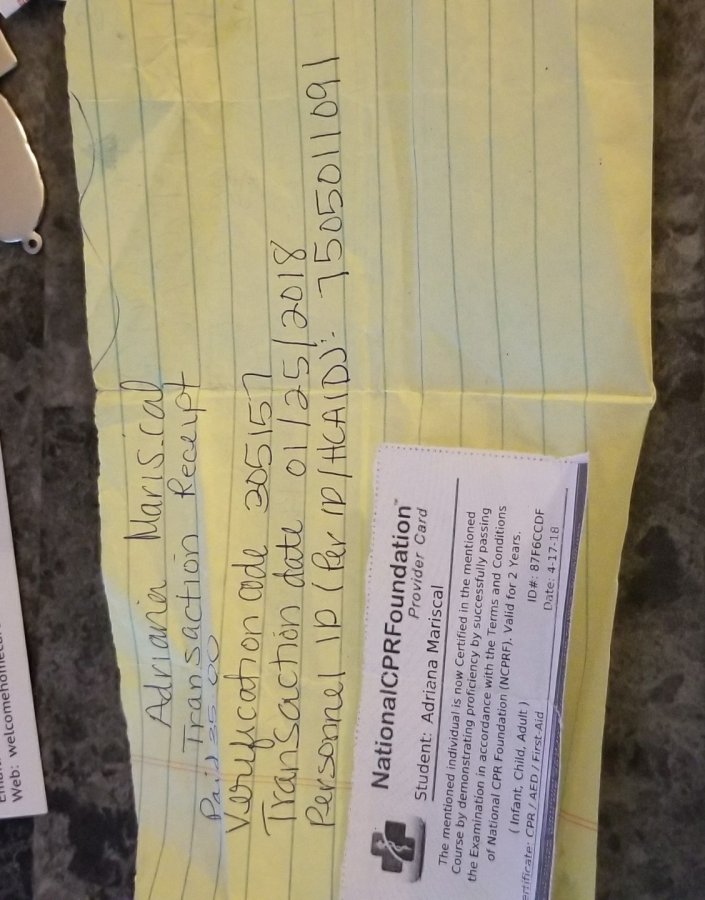 Adriana Mariscal
Transaction Receipt
Paid 35.00
Verification code 305157
Transaction date 01/25/2018
Personnel ID (Per ID/HCAID): 7505011091
NationalCPRFoundation™
Provider Card
Student: Adriana Mariscal
The mentioned individual is now Certified in the mentioned
Course by demonstrating proficiency by successfully passing
the Examination in accordance with the Terms and Conditions
of National CPR Foundation (NCPRF). Valid for 2 Years.
( Infant, Child, Adult )
ID#: 87F6CCDF
ertificate: CPR / AED / First-Aid
Date: 4-17-18
Web: welcomehomeca